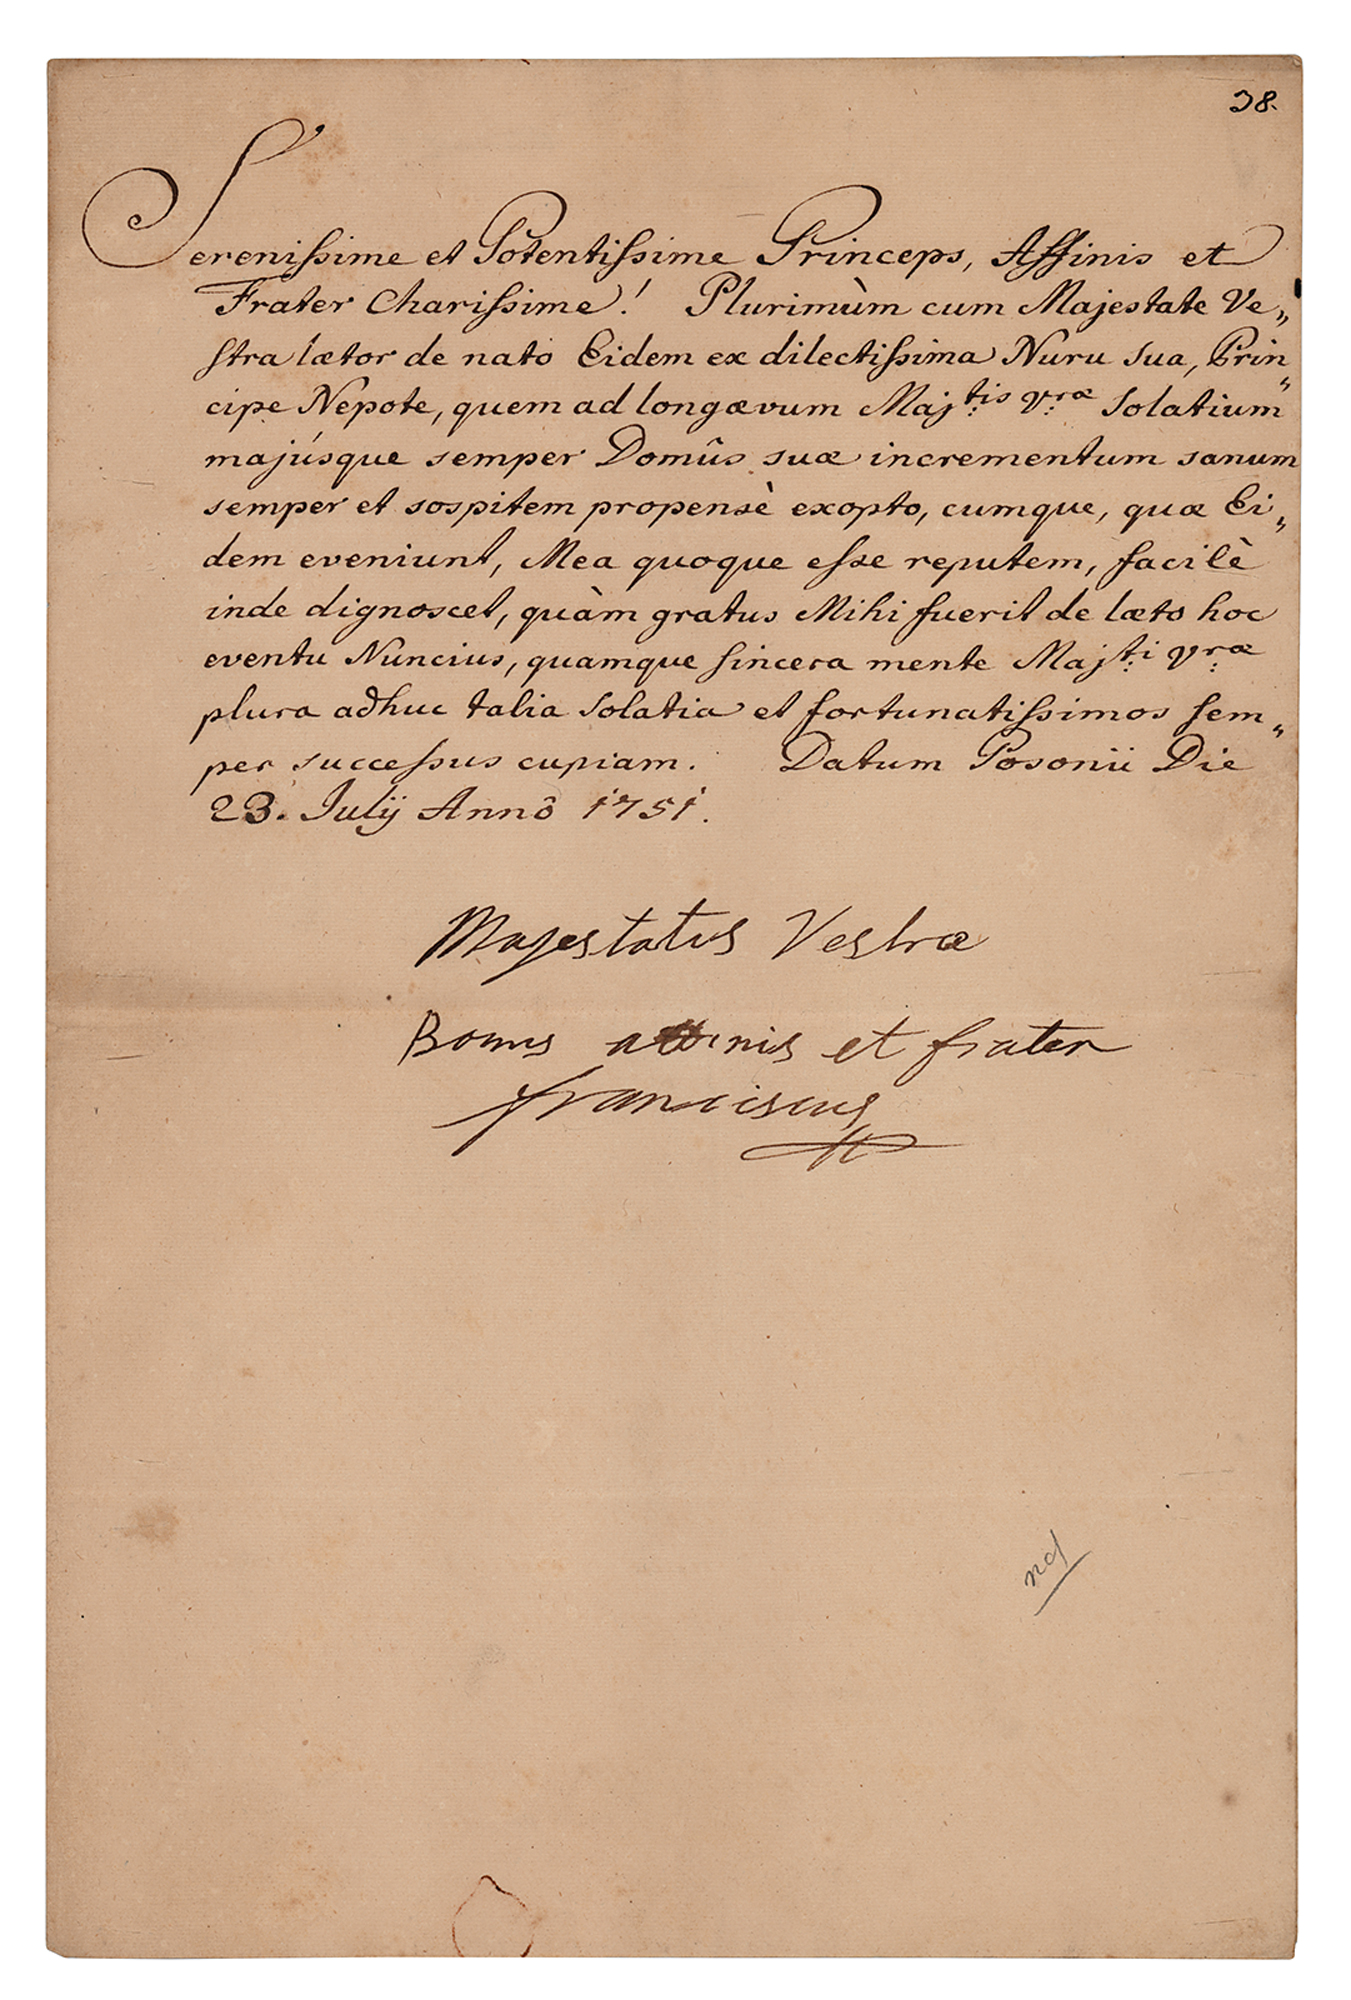 38.
Serenissime et Potentissime Princeps, Affinis et
Frater Charissime! Plurimùm cum Majestate Ve„
stra lætor de nato Eidem ex dilectissima Nuru sua, Prin„
cipe Nepote, quem ad longævum Maj:tis V:ræ Solatium
majúsque semper Domûs suæ incrementum sanum
semper et sospitem propensè exopto, cumque, quæ Ei„
dem eveniunt, Mea quoque esse reputem, facilè
inde dignoscet, quàm gratus Mihi fuerit de læto hoc
eventu Nuncius, quamque sincera mente Maj:ti V:ræ
plura adhuc talia Solatia et fortunatissimos sem„
per successus cupiam. Datum Posonii Die
23. Julij Annô 1751.
Majestatis Vestræ
Bonus affinis et frater
franciscus